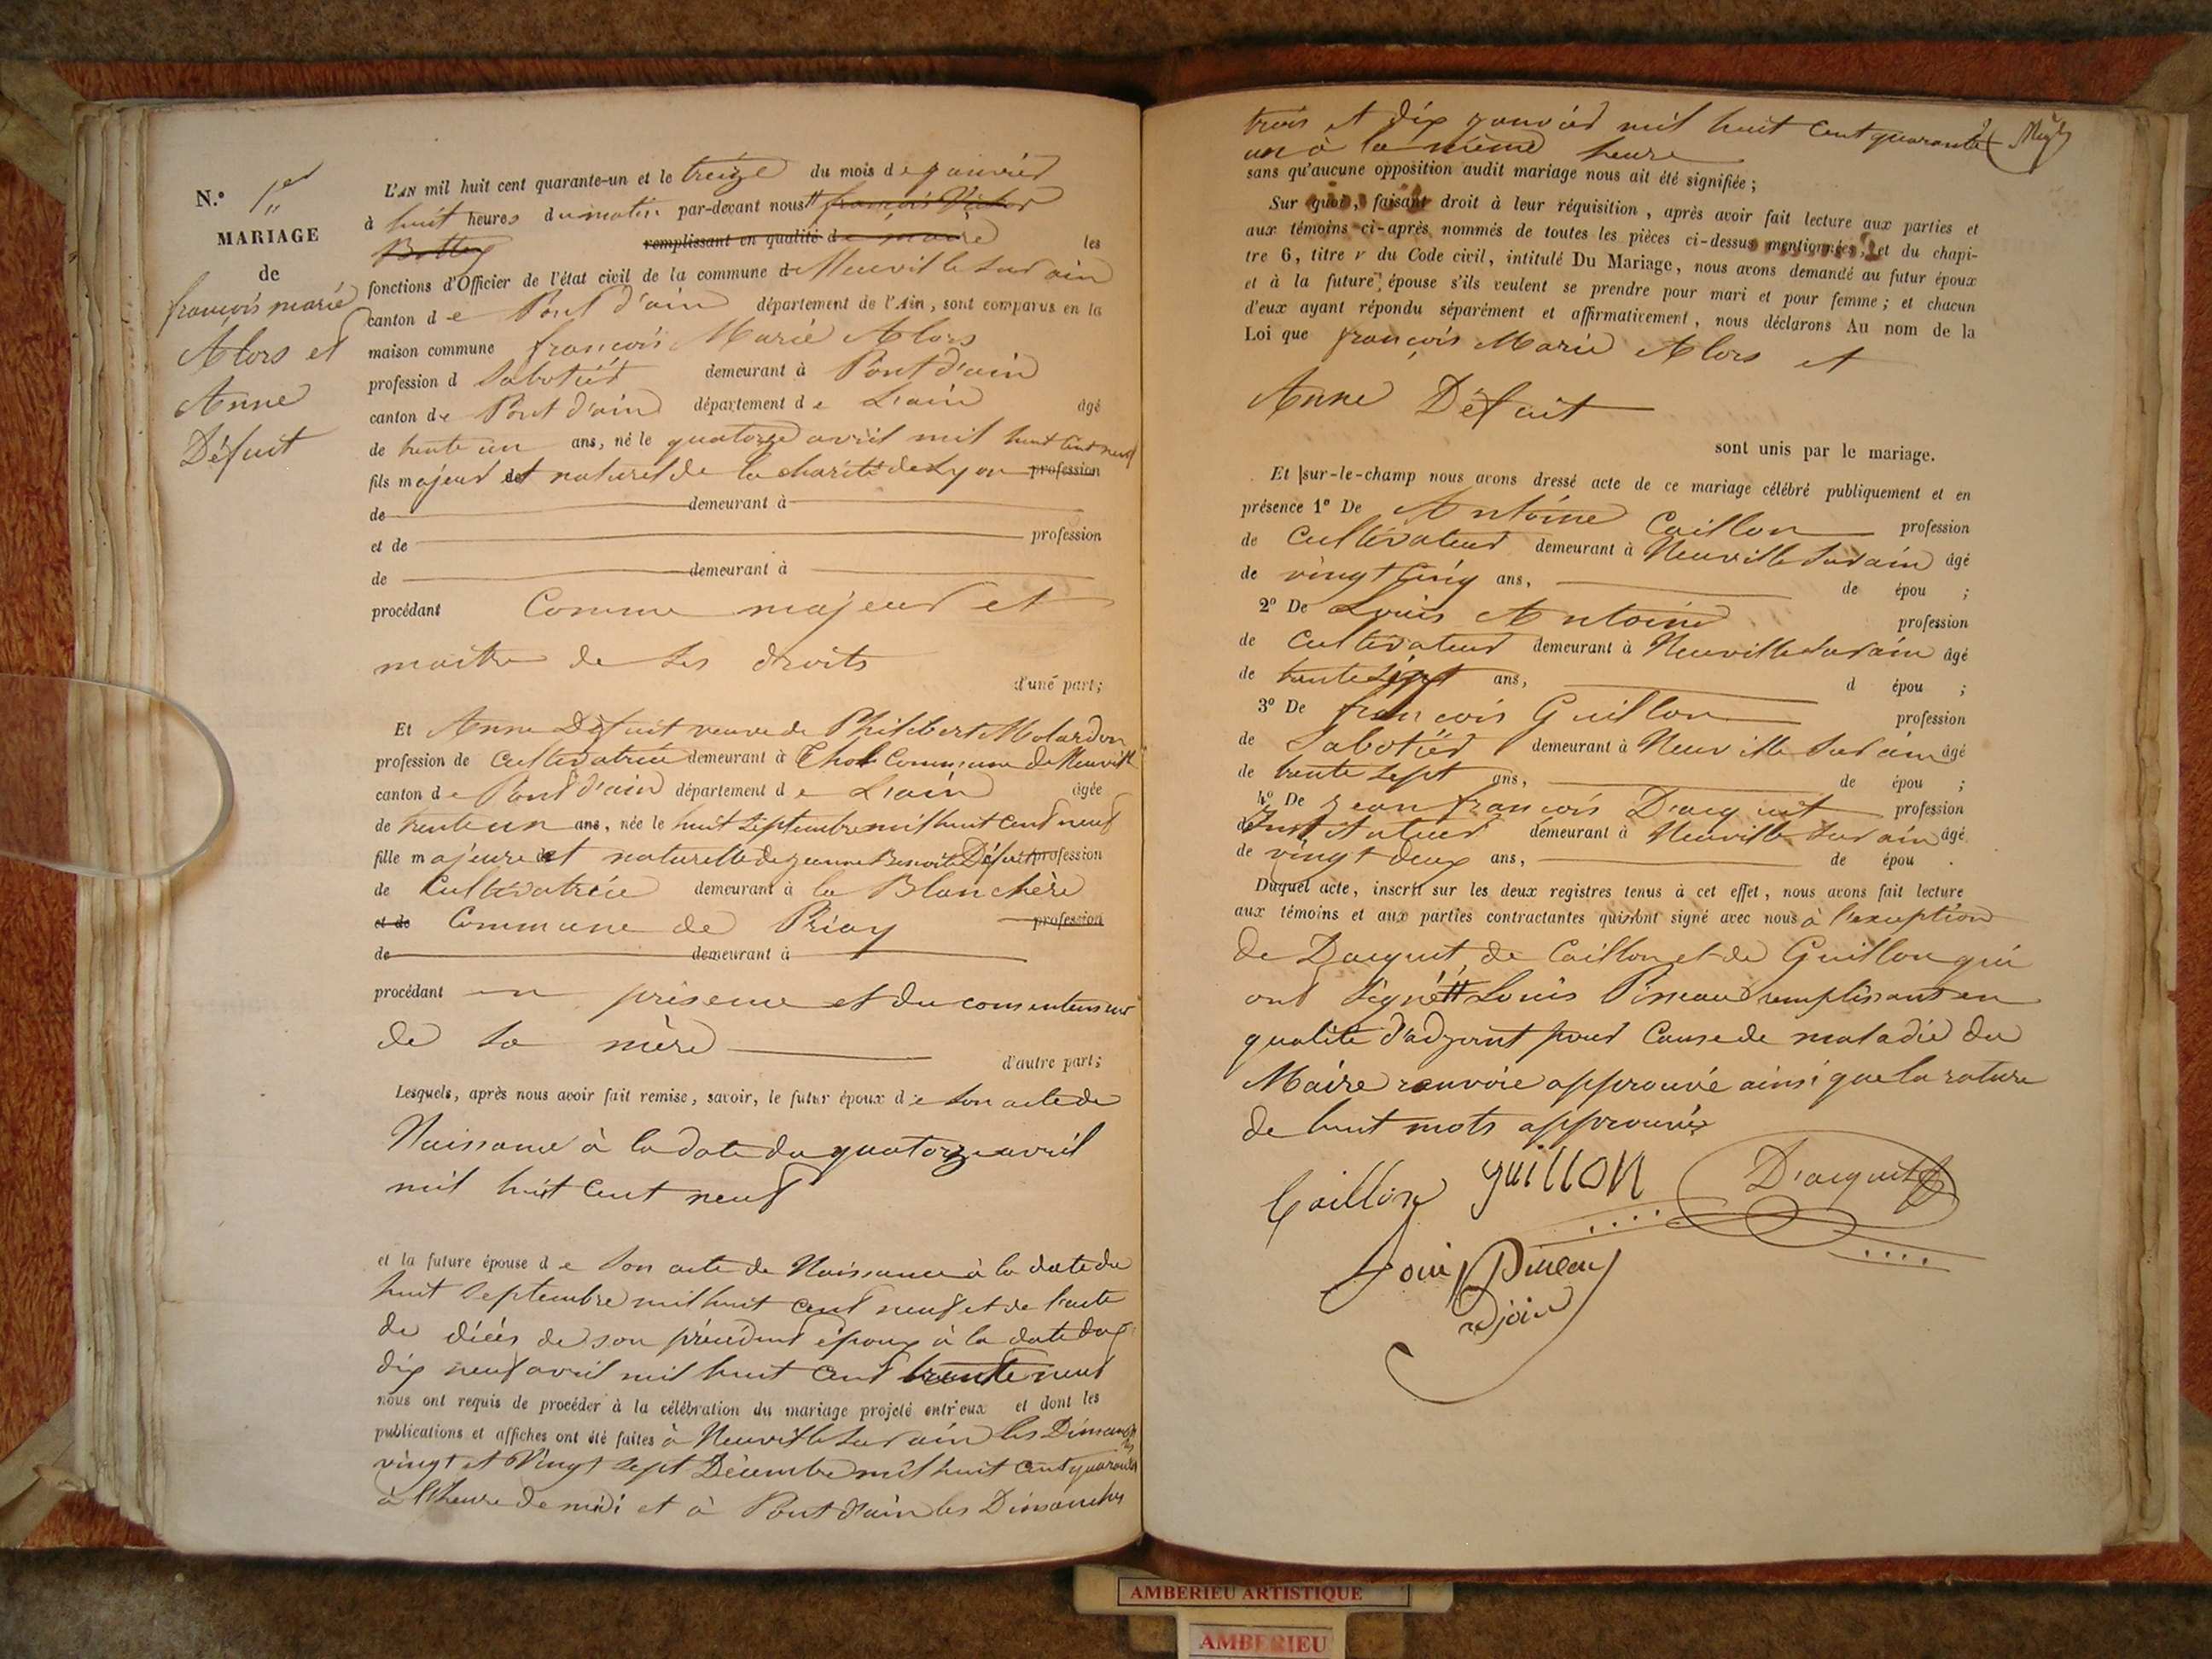 N.° 1er
MARIAGE
de
françois marie
Alors et
Anne
Défuit
L'AN mil huit cent quarante-un et le treize du mois de janvier
à huit heures du matin par-devant nous # françois Victor
remplissant en qualité de maire les
fonctions d'Officier de l'état civil de la commune de Neuville sur ain
canton de Pont d'ain département de l'Ain, sont comparus en la
maison commune françois Marie Alors
profession d sabotier demeurant à Pont d'ain
canton de Pont d'ain département de L'ain âgé
de trente un ans, né le quatorze avril mil huit cent neuf
fils majeur et naturel de la charité de Lyon profession
de demeurant à
et de profession
de demeurant à
procédant Comme majeur et
maitre de ses droits
d'une part;
Et Anne Défuit veuve de Philibert Molardon
profession de cultivatrice demeurant à Thol Commune de Neuville
canton de Pont d'ain département de L'ain âgée
de trente un ans, née le huit septembre mil huit cent neuf
fille majeure et naturelle de jeanne Benoite Défuit profession
de Cultivatrice demeurant à la Blanchère
et de Commune de Priay profession
de demeurant à
procédant en présence et du consentement
de sa mère
d'autre part;
Lesquels, après nous avoir fait remise, savoir, le futur époux de son acte de
Naissance à la date du quatorze avril
mil huit cent neuf
et la future épouse de son acte de Naissance à la date du
huit septembre mil huit cent neuf et de l'acte
de décès de son précédent époux à la date du
dix neuf avril mil huit cent trente neuf
nous ont requis de procéder à la célébration du mariage projeté entr'eux et dont les
publications et affiches ont été faites à Neuville sur ain les Dimanches
vingt et Vingt sept Décembre mil huit cent quarante
à l'heure de midi et à Pont d'ain les Dimanches
trois et dix janvier mil huit cent quarante
un à la même heure
sans qu'aucune opposition audit mariage nous ait été signifiée;
Sur quoi, faisant droit à leur réquisition, après avoir fait lecture aux parties et
aux témoins ci-après nommés de toutes les pièces ci-dessus mentionnées, et du chapi-
tre 6, titre v du Code civil, intitulé Du Mariage, nous avons demandé au futur époux
et à la future épouse s'ils veulent se prendre pour mari et pour femme; et chacun
d'eux ayant répondu séparément et affirmativement, nous déclarons Au nom de la
Loi que françois Marie Alors et
Anne Défuit
sont unis par le mariage.
Et sur-le-champ nous avons dressé acte de ce mariage célébré publiquement et en
présence 1° De Antoine Caillon profession
de Cultivateur demeurant à Neuville sur ain âgé
de vingt cinq ans, de épou ;
2° De Louis Antoine profession
de cultivateur demeurant à Neuville sur ain âgé
de trente sept ans, d épou ;
3° De françois Guillon profession
de Sabotier demeurant à Neuville sur ain âgé
de trente sept ans, de épou ;
4° De jean françois Dacquit profession
de Instituteur demeurant à Neuville sur ain âgé
de vingt deux ans, de épou .
Duquel acte, inscrit sur les deux registres tenus à cet effet, nous avons fait lecture
aux témoins et aux parties contractantes qui ont signé avec nous à l'exception
de Dacquit de Caillon et de Guillon qui
ont signé # Louis Pineau remplissant en
qualité d'adjoint pour Cause de maladie du
Maire renvoie approuvé ainsi que la rature
de huit mots approuvée
Caillon guillon D'acquit
Loui Pineau
adjoin
AMBERIEU ARTISTIQUE
AMBERIEU